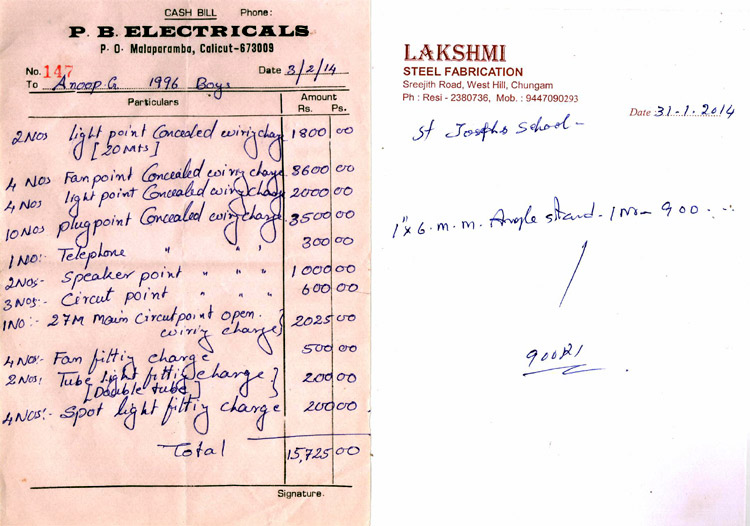 CASH BILL Phone:
P. B. ELECTRICALS
P. O. Malaparamba, Calicut-673009
No. 147 Date 3/2/14
To Anoop G. 1996 Boys
Particulars Amount
Rs. Ps.
2 Nos light point Concealed wiring charge 1800 00
[20 Mts]
4 Nos Fan point Concealed wiring charge 3600 00
4 Nos light point Concealed wiring charge 2000 00
10 Nos plug point Concealed wiring charge 3500 00
1 No:- Telephone " " 300 00
2 Nos:- Speaker point " " " 1000 00
3 Nos:- Circut point " " " 600 00
1 No:- 27M Main Circut point open. } 2025 00
wiring charge
4 Nos:- Fan fittig charge 500 00
2 Nos: Tube light fittig charge. } 200 00
[Double tube]
4 Nos:- Spot light fittig charge 200 00
Total 15,725 00
Signature.
LAKSHMI
STEEL FABRICATION
Sreejith Road, West Hill, Chungam
Ph : Resi - 2380736, Mob. : 9447090293
Date 31-1-2014
St Josephs School -
1" x 6. m. m. Angle stand - 1 No - 900
900